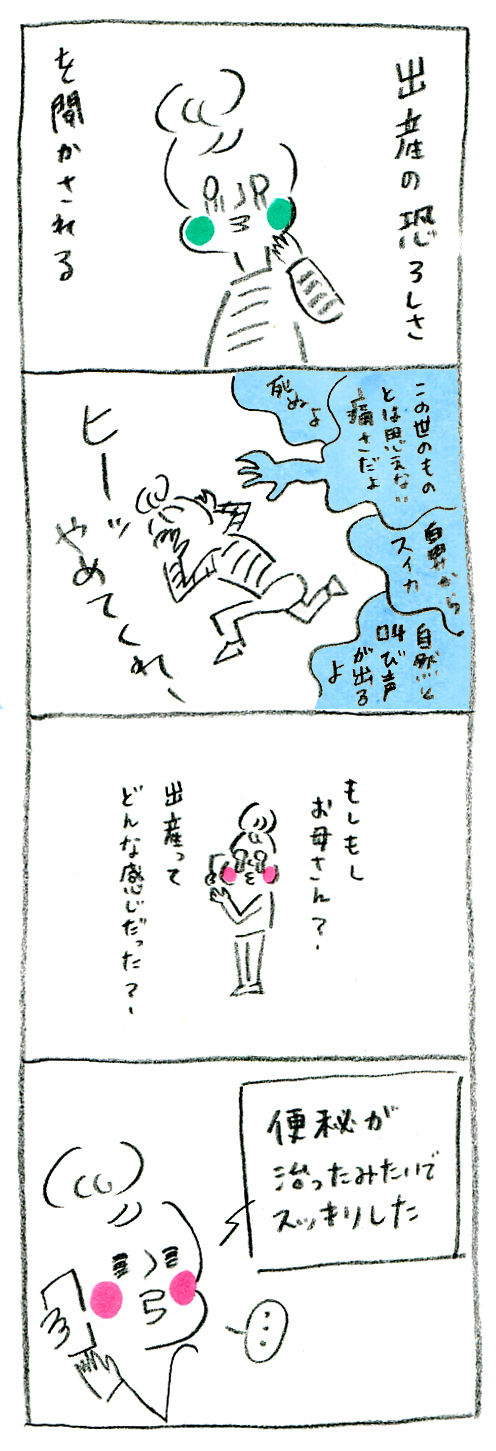 出産の恐ろしさ
を聞かされる
この世のもの
とは思えない
痛さだよ
死ぬよ
鼻から
スイカ
自然と
叫び声
が出る
よ
ヒーッ
やめてくれ、
もしもし
お母さん?
出産って
どんな感じだった?
便秘が
治ったみたいで
スッキリした
…